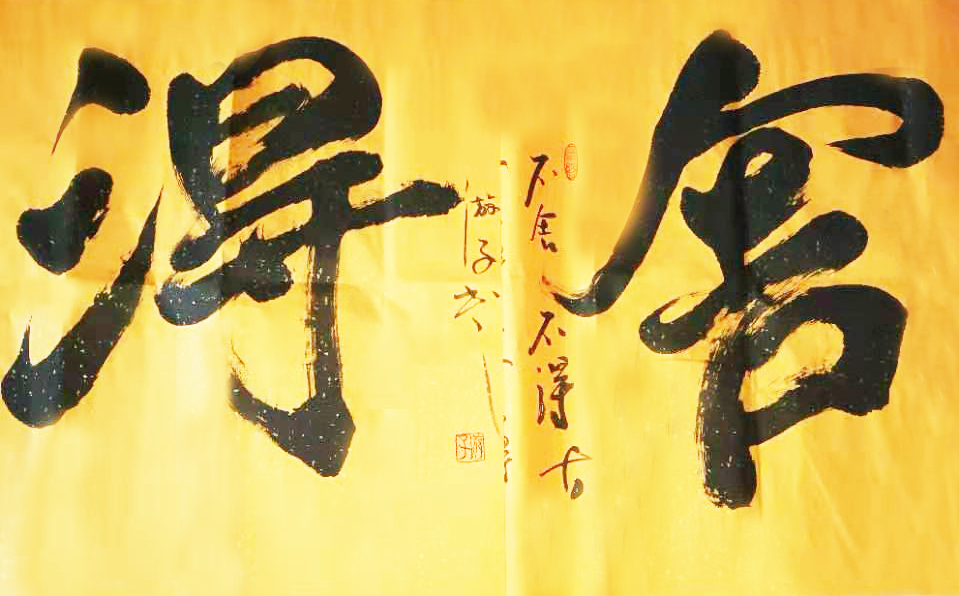 舍得
不舍不得
游子书